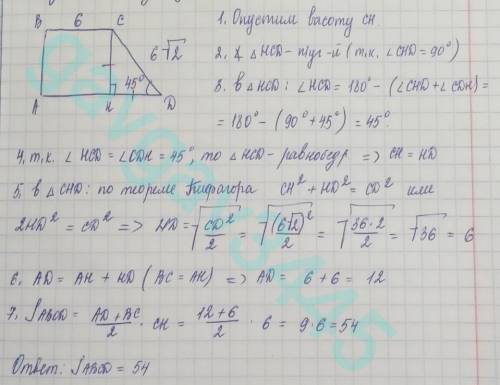 B 6 C
6√2
45°
A H D
1. Опустим высоту CH.
2. ∠ △HCD - п/уг-й (т.к. ∠CHD = 90°)
3. в △HCD: ∠HCD = 180° - (∠CHD + ∠CDH) =
= 180° - (90° + 45°) = 45°.
4. т.к. ∠HCD = ∠CDH = 45°, то △HCD - равнобедр => CH = HD
5. в △CHD: по теореме Пифагора CH² + HD² = CD² или
2HD² = CD² => HD = √(CD²/2) = √((6√2)²/2) = √(36·2/2) = √36 = 6
6. AD = AH + HD (BC = AH) => AD = 6 + 6 = 12
7. SABCD = (AD + BC)/2 · CH = (12 + 6)/2 · 6 = 9·6 = 54
Ответ: SABCD = 54